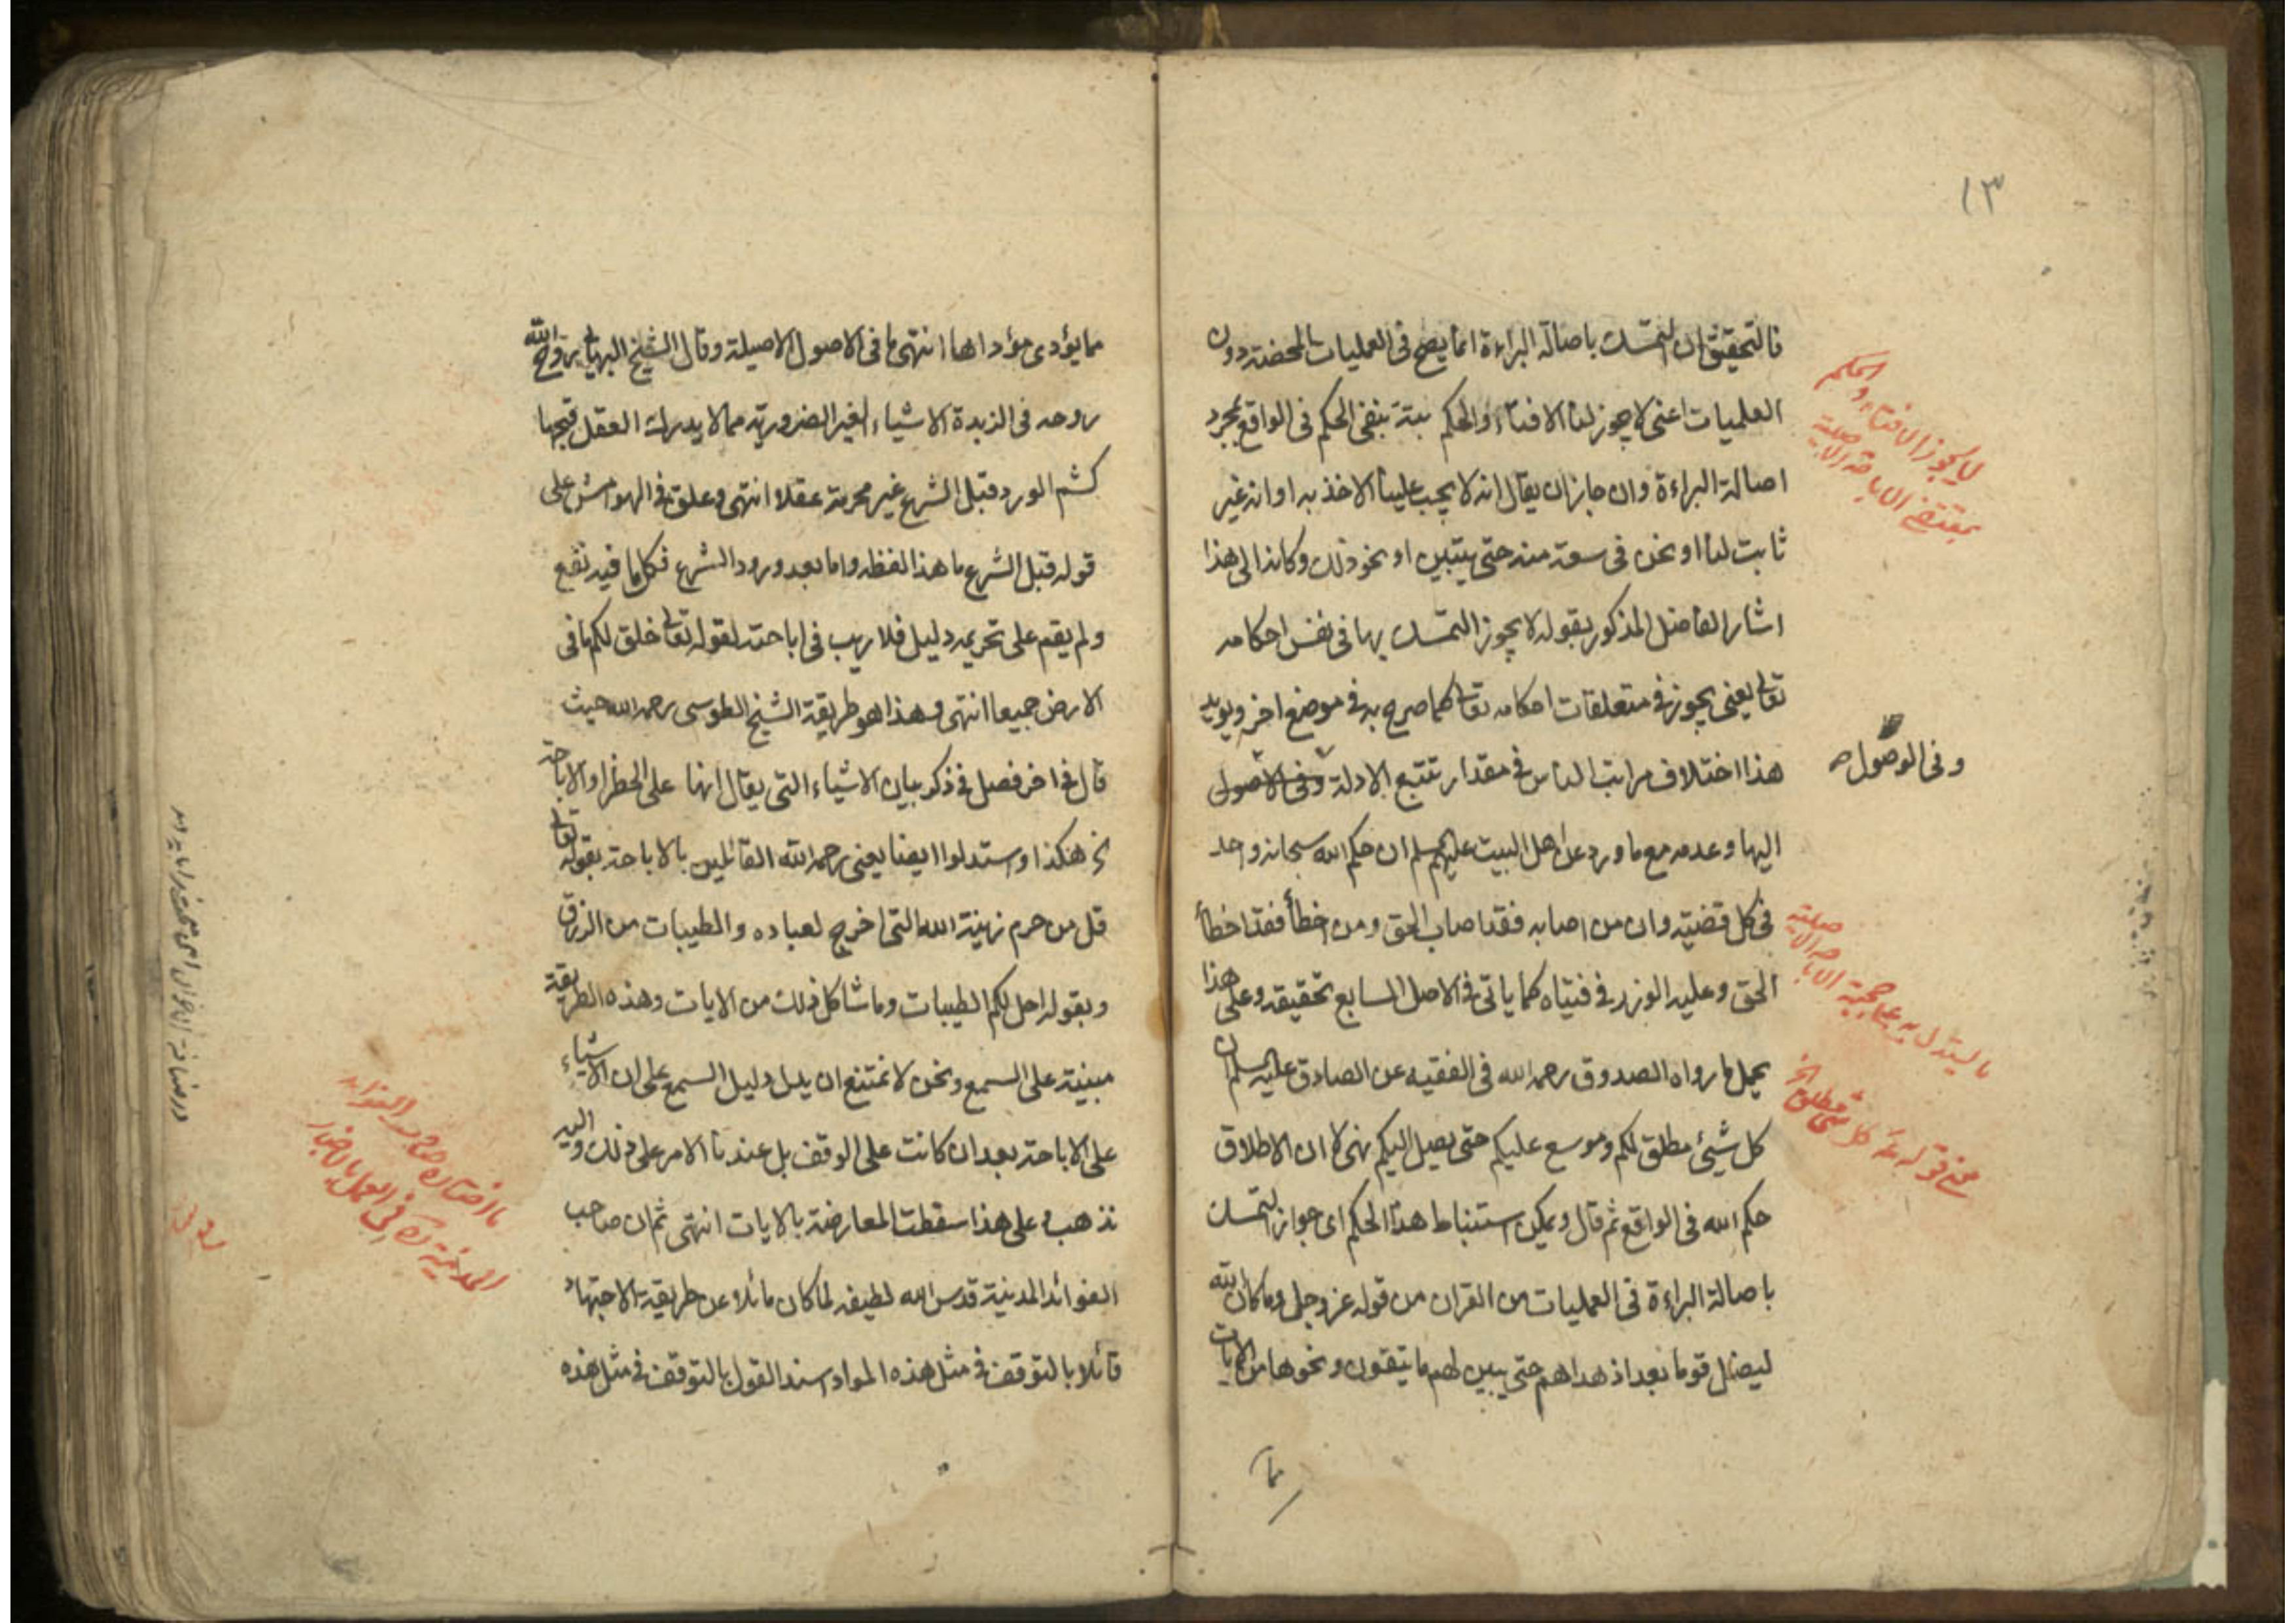 ١٣
فالتحقيق ان التمسك باصالة البراءة انما يصح فى العمليات المحضة دون
العلميات اعنى لا يجوز لنا الافتاء والحكم بتة بنفى الحكم فى الواقع بمجرد
اصالة البراءة وان جاز ان يقال انه لا يجب علينا الاخذ به او انه غير
ثابت لنا او نحن فى سعة منه حتى يتبين او نحو ذلك وكانه الى هذا
اشار الفاضل المذكور بقوله لا يجوز التمسك بها فى نفس احكامه
تعالى يعنى يجوز فى متعلقات احكامه تعالى كما صرح به فى موضع اخر ويويد
هذا اختلاف مراتب الناس فى مقدار تتبع الادلة وفى الاصول
اليها وعدمه مع ما ورد عن اهل البيت عليهم السلام ان حكم الله سبحانه واحد
فى كل قضية وان من اصابه فقد اصاب الحق ومن اخطأ فقد اخطأ
الحق وعليه الوزر فى فتياه كما ياتى فى الاصل السابع تحقيقه وعلى هذا
يحمل ما رواه الصدوق رحمه الله فى الفقيه عن الصادق عليه السلام ان
كل شيئ مطلق لكم وموسع عليكم حتى يصل اليكم نهى لا ان الاطلاق
حكم الله فى الواقع ثم قال ويمكن استنباط هذا الحكم اى جواز التمسك
باصالة البراءة فى العمليات من القران من قوله عز وجل وما كان الله
ليضل قوما بعد اذ هداهم حتى يبين لهم ما يتقون ونحوها من الايات
مما
لا يجوز الافتاء والحكم
بمقتضى الاباحة الاصلية
وفى الوصول صح
ما يستدل به على حجية الاباحة الاصلية
من قوله كل شئ مطلق الخ
مما يؤدى مؤداها انتهى ما فى الاصول الاصيلة وقال الشيخ البهائى روح الله
روحه فى الزبدة الاشياء الغير الضرورية مما لا يدرك العقل قبحها
كشم الورد قبل الشرع غير محرمة عقلا انتهى وعلق فى الهوامش على
قوله قبل الشرع ما هذا لفظه واما بعد ورود الشرع فكلما فيه نفع
ولم يقم على تحريمه دليل فلا ريب فى اباحته لقوله تعالى خلق لكم ما فى
الارض جميعا انتهى وهذا هو طريقة الشيخ الطوسى رحمه الله حيث
قال فى اخر فصل فى ذكر بيان الاشياء التى يقال انها على الحظر او الاباحة
هكذا واستدلوا ايضا يعنى رحمه الله القائلين بالاباحة بقوله تعالى
قل من حرم زينة الله التى اخرج لعباده والطيبات من الرزق
وبقوله احل لكم الطيبات وما شاكل ذلك من الايات وهذه الطريقة
مبنية على السمع ونحن لا نمتنع ان يدل دليل السمع على ان الاشياء
على الاباحة بعد ان كانت على الوقف بل عندنا الامر على ذلك واليه
نذهب وعلى هذا سقطت المعارضة بالايات انتهى ثم ان صاحب
الفوائد المدنية قدس الله لطيفه لما كان مائلا عن طريقة الاجتهاد
قائلا بالتوقف فى مثل هذه المواد اسند القول بالتوقف فى مثل هذه
ما اختاره صاحب الفوائد
المدنية فى العمل بالاخبار